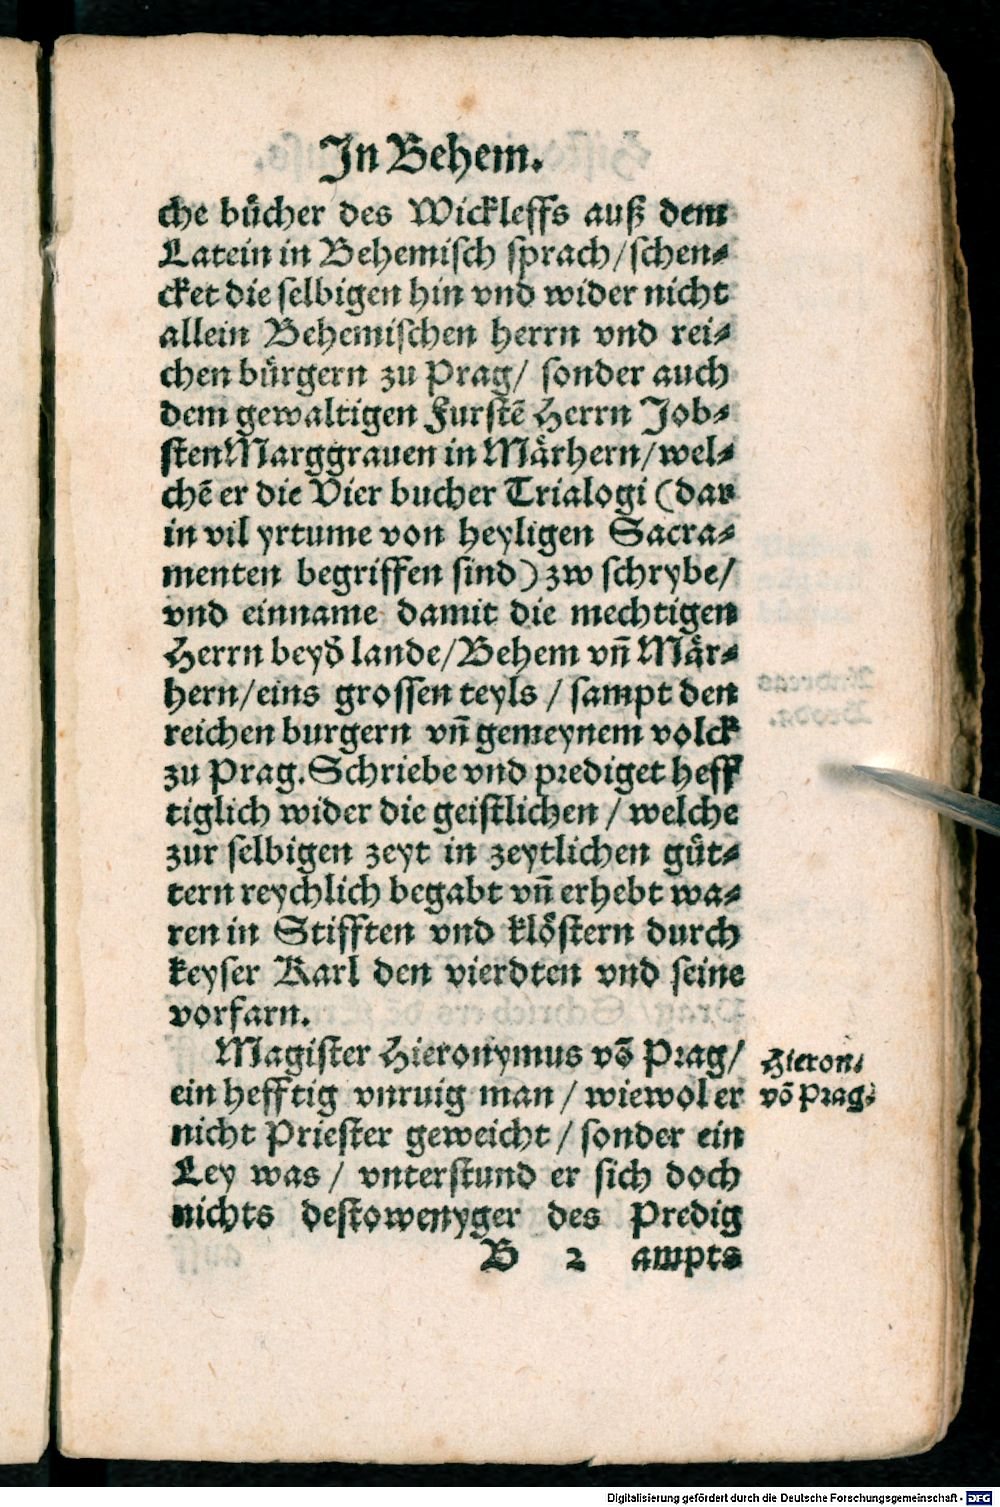 In Behem.
che bůcher des Wickleffs auß dem
Latein in Behemisch sprach/schen⸗
cket die selbigen hin vnd wider nicht
allein Behemischen herrn vnd rei⸗
chen bůrgern zu Prag/ sonder auch
dem gewaltigen Furstẽ Herrn Job⸗
sten Marggrauen in Mårhern/wel⸗
chẽ er die Vier bucher Trialogi (dar
in vil yrtume von heyligen Sacra⸗
menten begriffen sind) zw schrybe/
vnd einname damit die mechtigen
Herrn beyd̃ lande/Behem vñ Mår⸗
hern/eins grossen teyls / sampt den
reichen burgern vñ gemeynem volck
zu Prag. Schriebe vnd prediget heff
tiglich wider die geistlichen / welche
zur selbigen zeyt in zeytlichen gůt⸗
tern reychlich begabt vñ erhebt wa⸗
ren in Stifften vnd klőstern durch
keyser Karl den vierdten vnd seine
vorfarn.
Magister Hieronymus võ Prag/
ein hefftig vnruig man / wiewol er
nicht Priester geweicht / sonder ein
Ley was / vnterstund er sich doch
nichts destowenyger des Predig
B 2 ampts
Hieron⸗
võ Prag⸗
Digitalisierung gefördert durch die Deutsche Forschungsgemeinschaft - DFG